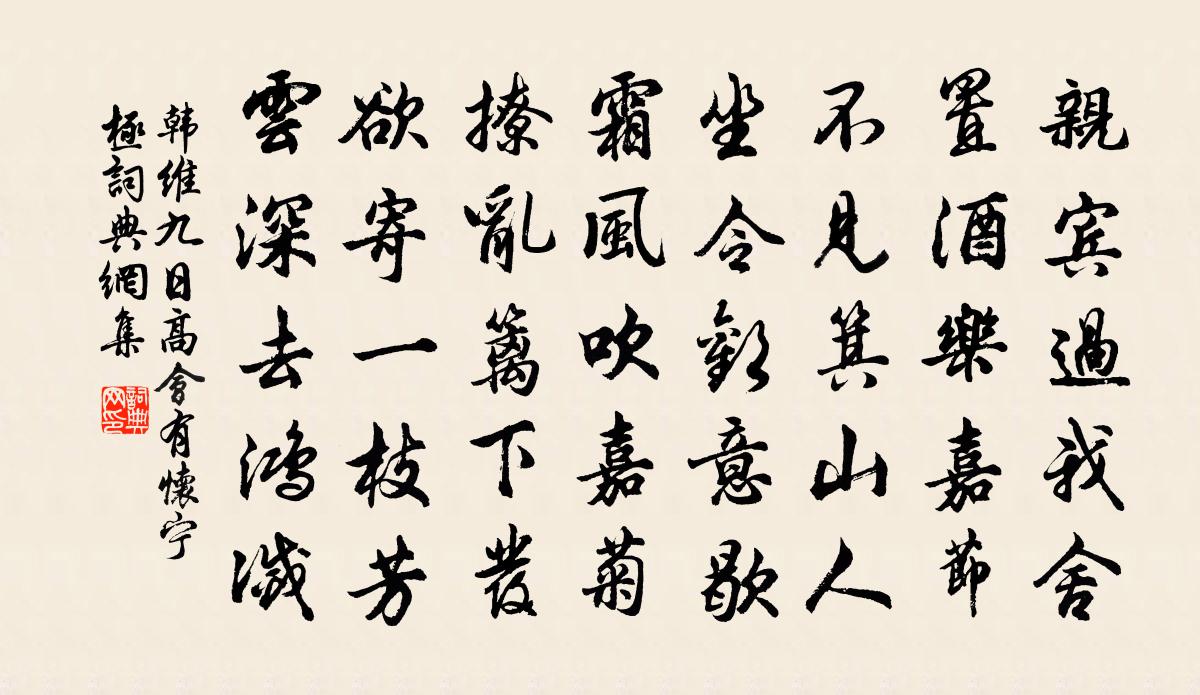 親賓過我舍
置酒樂嘉節
不見箕山人
坐令歡意歇
霜風吹嘉菊
撩亂籬下發
欲寄一枝芳
雲深去鴻滅
韩維九日高會有懷宁
極詞典網集
詞典
网印